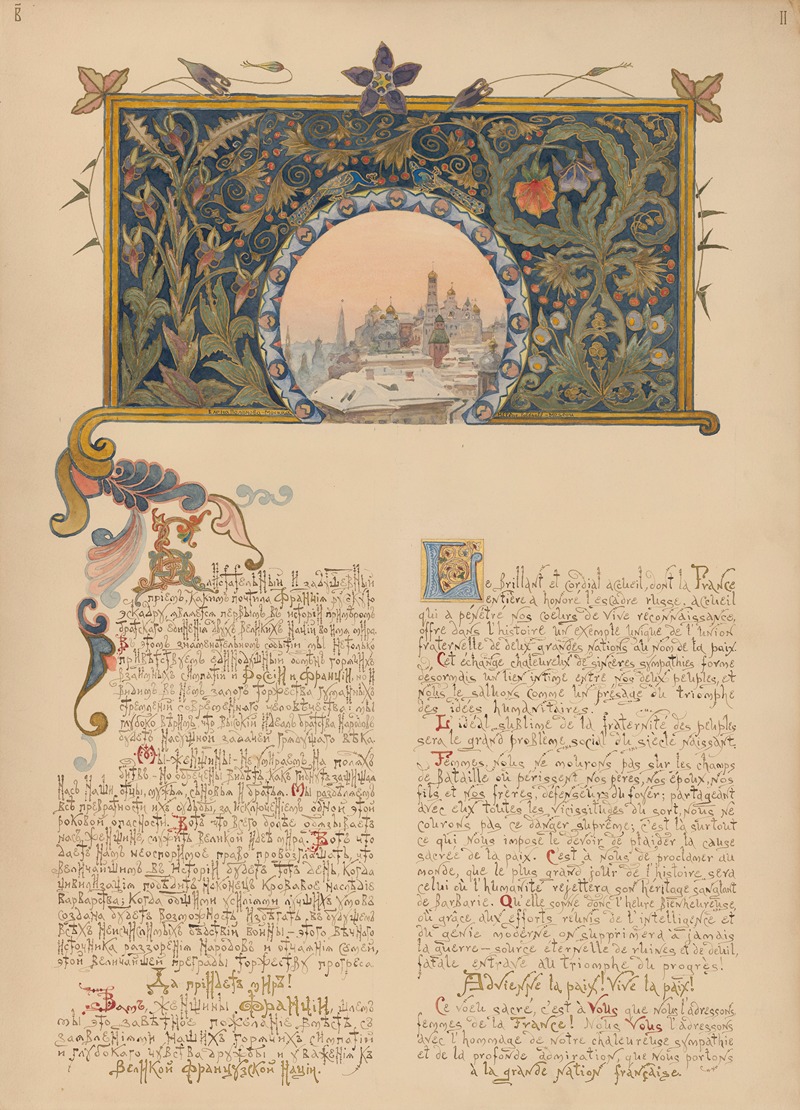 В
II
Елена Поленова - Москва
Hélène Polenoff - Moscou
Блистательный и задушевный
пріемъ, какимъ почтила Франція русскую
эскадру, является первымъ въ исторіи примѣромъ
братскаго единенія двухъ великихъ націй во имя мира.
Въ этомъ знаменательномъ событіи мы не только
привѣтствуемъ единодушный обмѣнъ горячихъ
взаимныхъ симпатій Россіи и Франціи, но и
видимъ въ немъ залогъ торжества гуманныхъ
стремленій современнаго человѣчества: мы
глубоко вѣримъ, что высокій идеалъ братства народовъ
будетъ насущной задачей грядущаго вѣка.
Мы - женщины - не умираемъ на поляхъ
битвъ - но обречены видѣть, какъ гибнутъ защищая
насъ наши отцы, мужья, сыновья и братья. Мы раздѣляемъ
всѣ превратности ихъ судьбы, за исключеніемъ одной этой
роковой опасности. Вотъ что всего болѣе обязываетъ
насъ, женщинъ, служить великой идеѣ мира. Вотъ что
даетъ намъ неоспоримое право провозглашать, что
величайшимъ въ исторіи будетъ тотъ день, когда
цивилизація побѣдитъ наконецъ кровавое наслѣдіе
варварства; когда общими усиліями лучшихъ умовъ
создана будетъ возможность избѣгать въ будущемъ
всѣхъ неисчислимыхъ бѣдствій войны - этого вѣчнаго
источника раззоренія народовъ и отчаянія семей,
этой величайшей преграды торжеству прогреса.
Да пріидетъ миръ!
Вамъ, женщины Франціи, шлемъ
мы это завѣтное пожеланіе вмѣстѣ съ
заявленіями нашихъ горячихъ симпатій
и глубокаго чувства дружбы и уваженія къ
великой французской націи.
Le brillant et cordial accueil, dont la France
entière a honoré l'escadre russe, accueil
qui a pénétré nos coeurs de vive reconnaissance,
offre dans l'histoire un exemple unique de l'union
fraternelle de deux grandes nations au nom de la paix.
Cet échange chaleureux de sincères sympathies forme
désormais un lien intime entre nos deux peuples, et
nous le saluons comme un présage du triomphe
des idées humanitaires.
L'idéal sublime de la fraternité des peuples
sera le grand problème social du siècle naissant.
Femmes, nous ne mourons pas sur les champs
de bataille où périssent nos pères, nos époux, nos
fils et nos frères, défenseurs du foyer; partageant
avec eux toutes les vicissitudes du sort, nous ne
courons pas ce danger suprême; c'est là surtout
ce qui nous impose le devoir de plaider la cause
sacrée de la paix. C'est à nous de proclamer au
monde, que le plus grand jour de l'histoire sera
celui où l'humanité rejettera son héritage sanglant
de barbarie. Qu'elle sonne donc l'heure bienheureuse,
où grâce aux efforts réunis de l'intelligence et
du génie moderne on supprimera à jamais
la guerre - source éternelle de ruines et de deuil,
fatale entrave au triomphe du progrès!
Advienne la paix! Vive la paix!
Ce voeu sacré, c'est à Vous que nous l'adressons,
femmes de la France! Nous Vous l'adressons
avec l'hommage de notre chaleureuse sympathie
et de la profonde admiration, que nous portons
à la grande nation française.